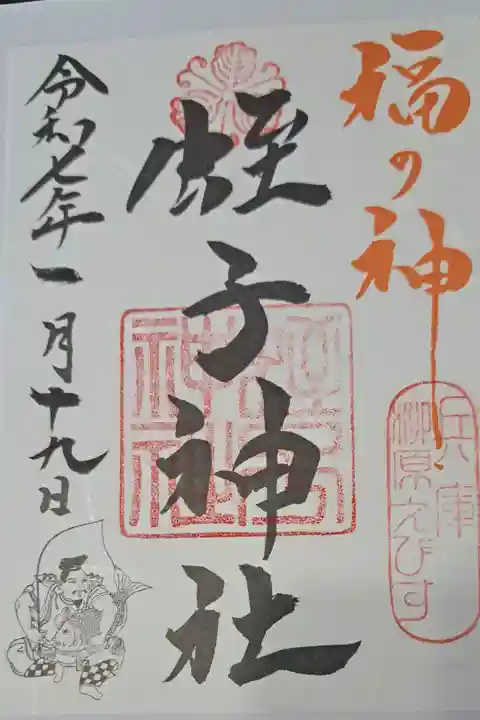 福の神
兵庫
柳原えびす
蛭子神社
令和七年一月十九日